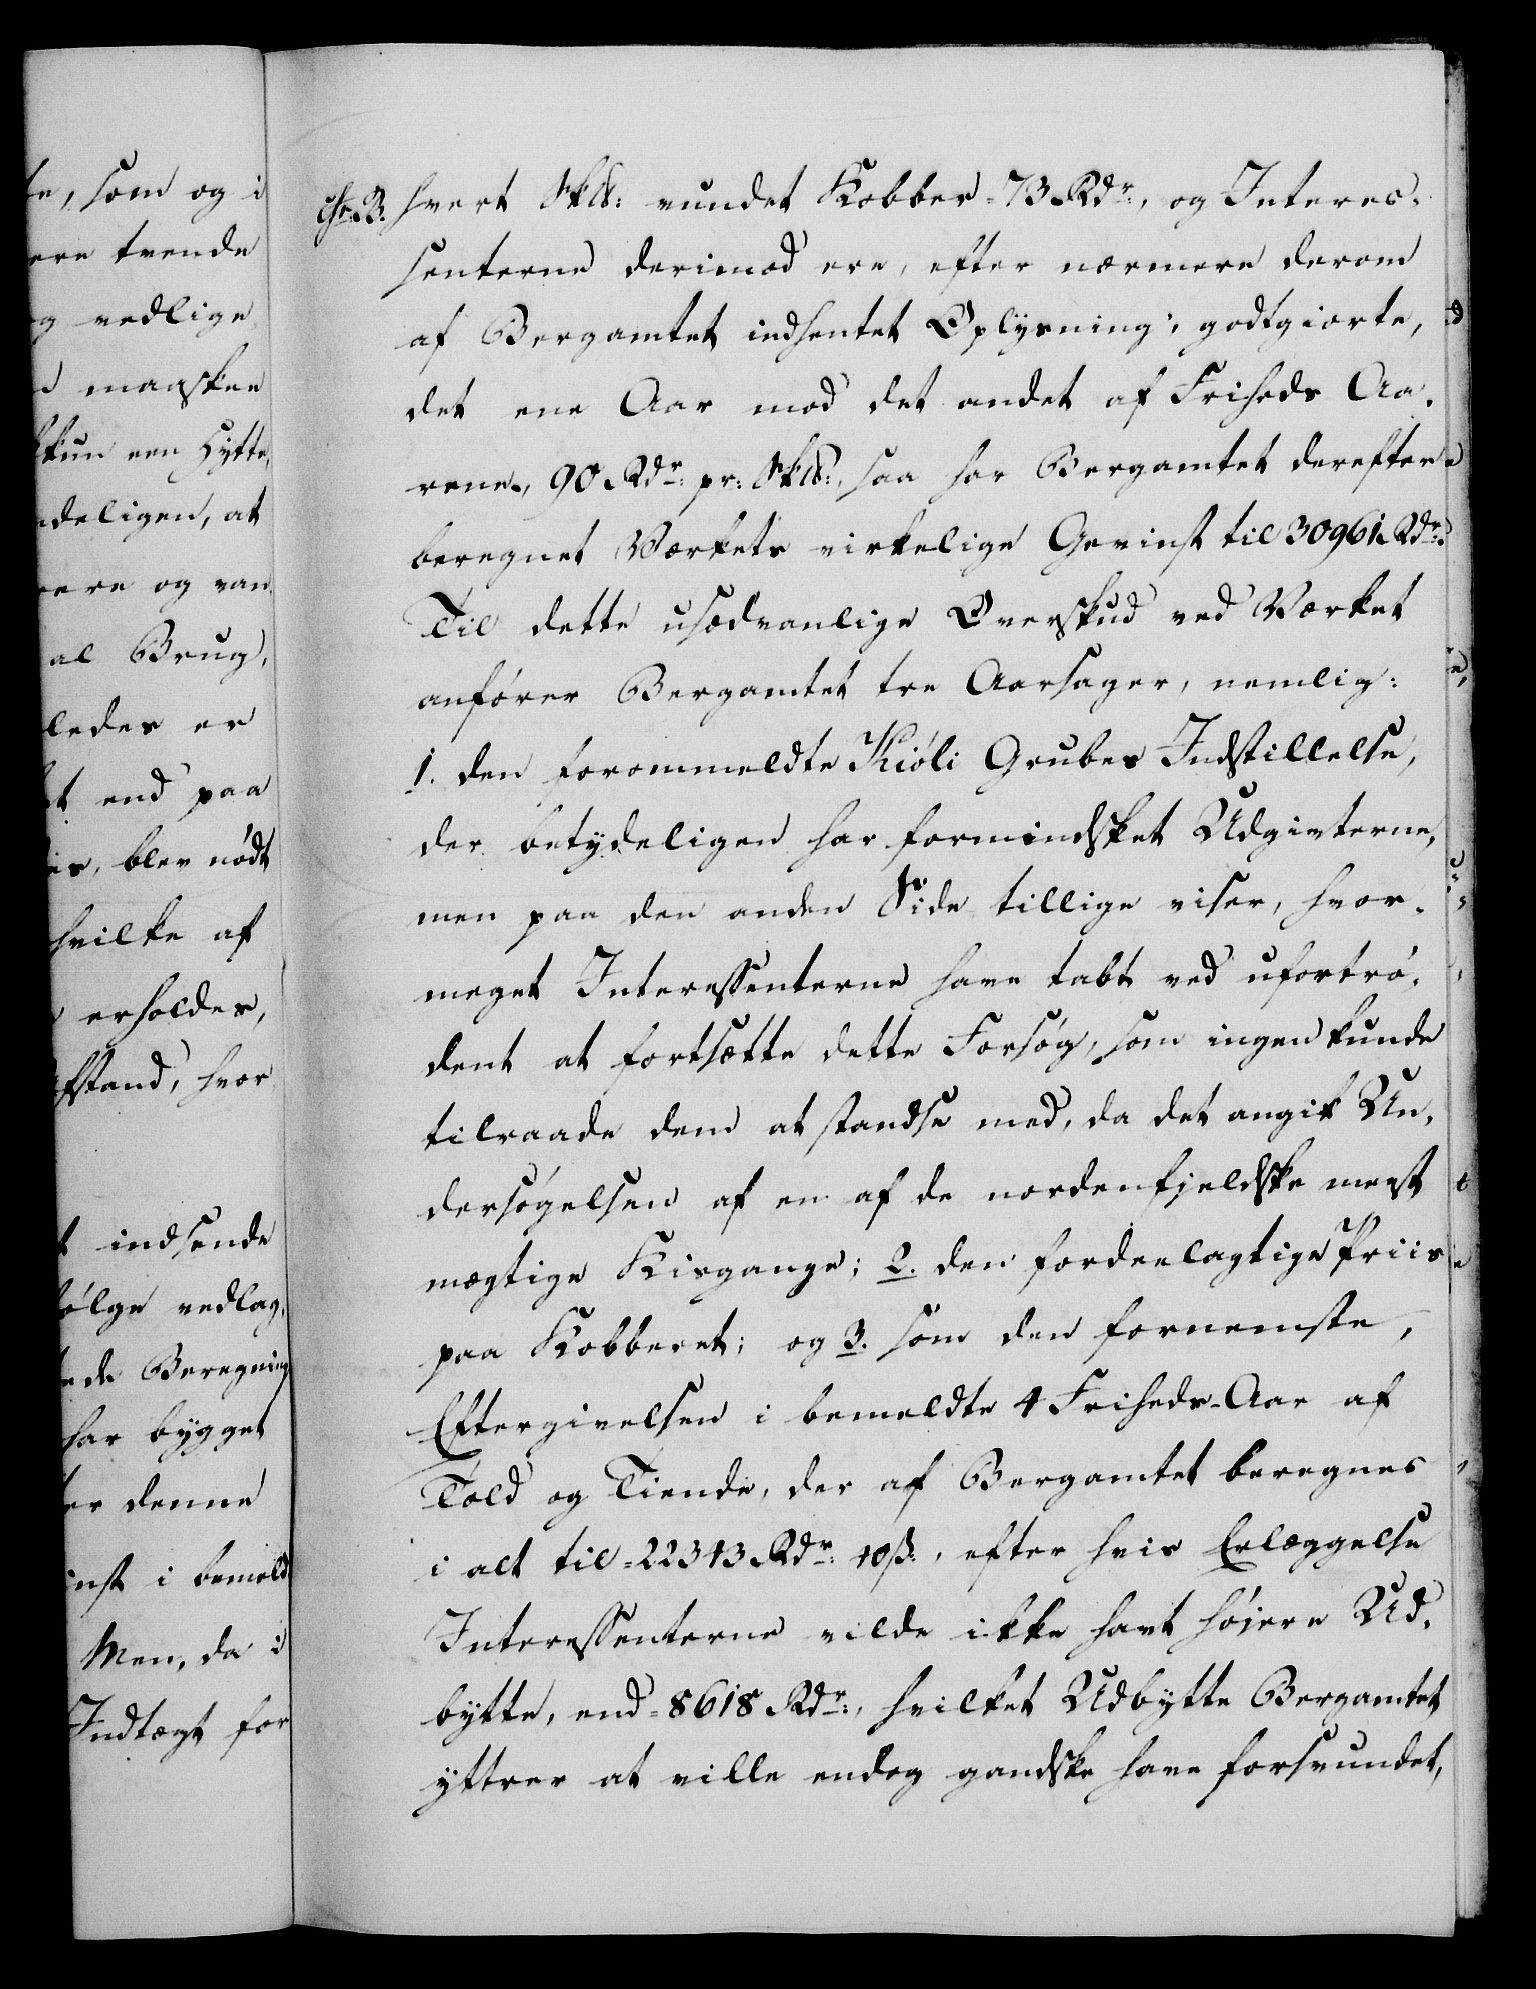 te, som og i
ere trende
og vedlige
maaskee
kun een Hytte,
ndeligen, at
vere og van
al Brug,
ledes er
end paa
es, blev nødt
hvilke af
erholdes,
fstand, hvor
t indsende
følge vedlag.
ede Beregning
har bygget
er denne
inst i bemeld
Men, da i
Indtægt for
hvert Sk℔: vundet Kobber = 73 Rdr:, og Interes-
senterne derimod ere, efter nærmere derom
af Bergamtet indhentet Oplysning, godtgiorte,
det ene Aar mod det andet af Friheds Aa-
rene, 90 Rdr: pr: Sk℔:, saa har Bergamtet derefter
beregnet Værkets virkelige Gevinst til 30961 Rdr:
Til dette usædvanlige Overskud ved Værket
anfører Bergamtet tre Aarsager, nemlig:
1. den forommeldte Kiøli Grubes Indstillelse,
der betydeligen har formindsket Udgivterne,
men paa den anden Side tillige viser, hvor-
meget Interessenterne have tabt ved ufortrø-
dent at fortsætte dette Forsøg, som ingen kunde
tilraade dem at standse med, da det angik Un-
dersøgelsen af en af de nordenfjeldske meest
mægtige Kisgange; 2. den fordeelagtige Priis
paa Kobberet; og 3. som den fornemste,
Eftergivelsen i bemeldte 4 Friheds-Aar af
Told og Tiende, der af Bergamtet beregnes
i alt til = 22343 Rdr: 40 ß:, efter hvis Erlæggelse
Interessenterne vilde ikke havt høiere Ud-
bytte, end = 8618 Rdr:, hvilket Udbytte Bergamtet
yttrer at ville endog gandske have forsvundet,